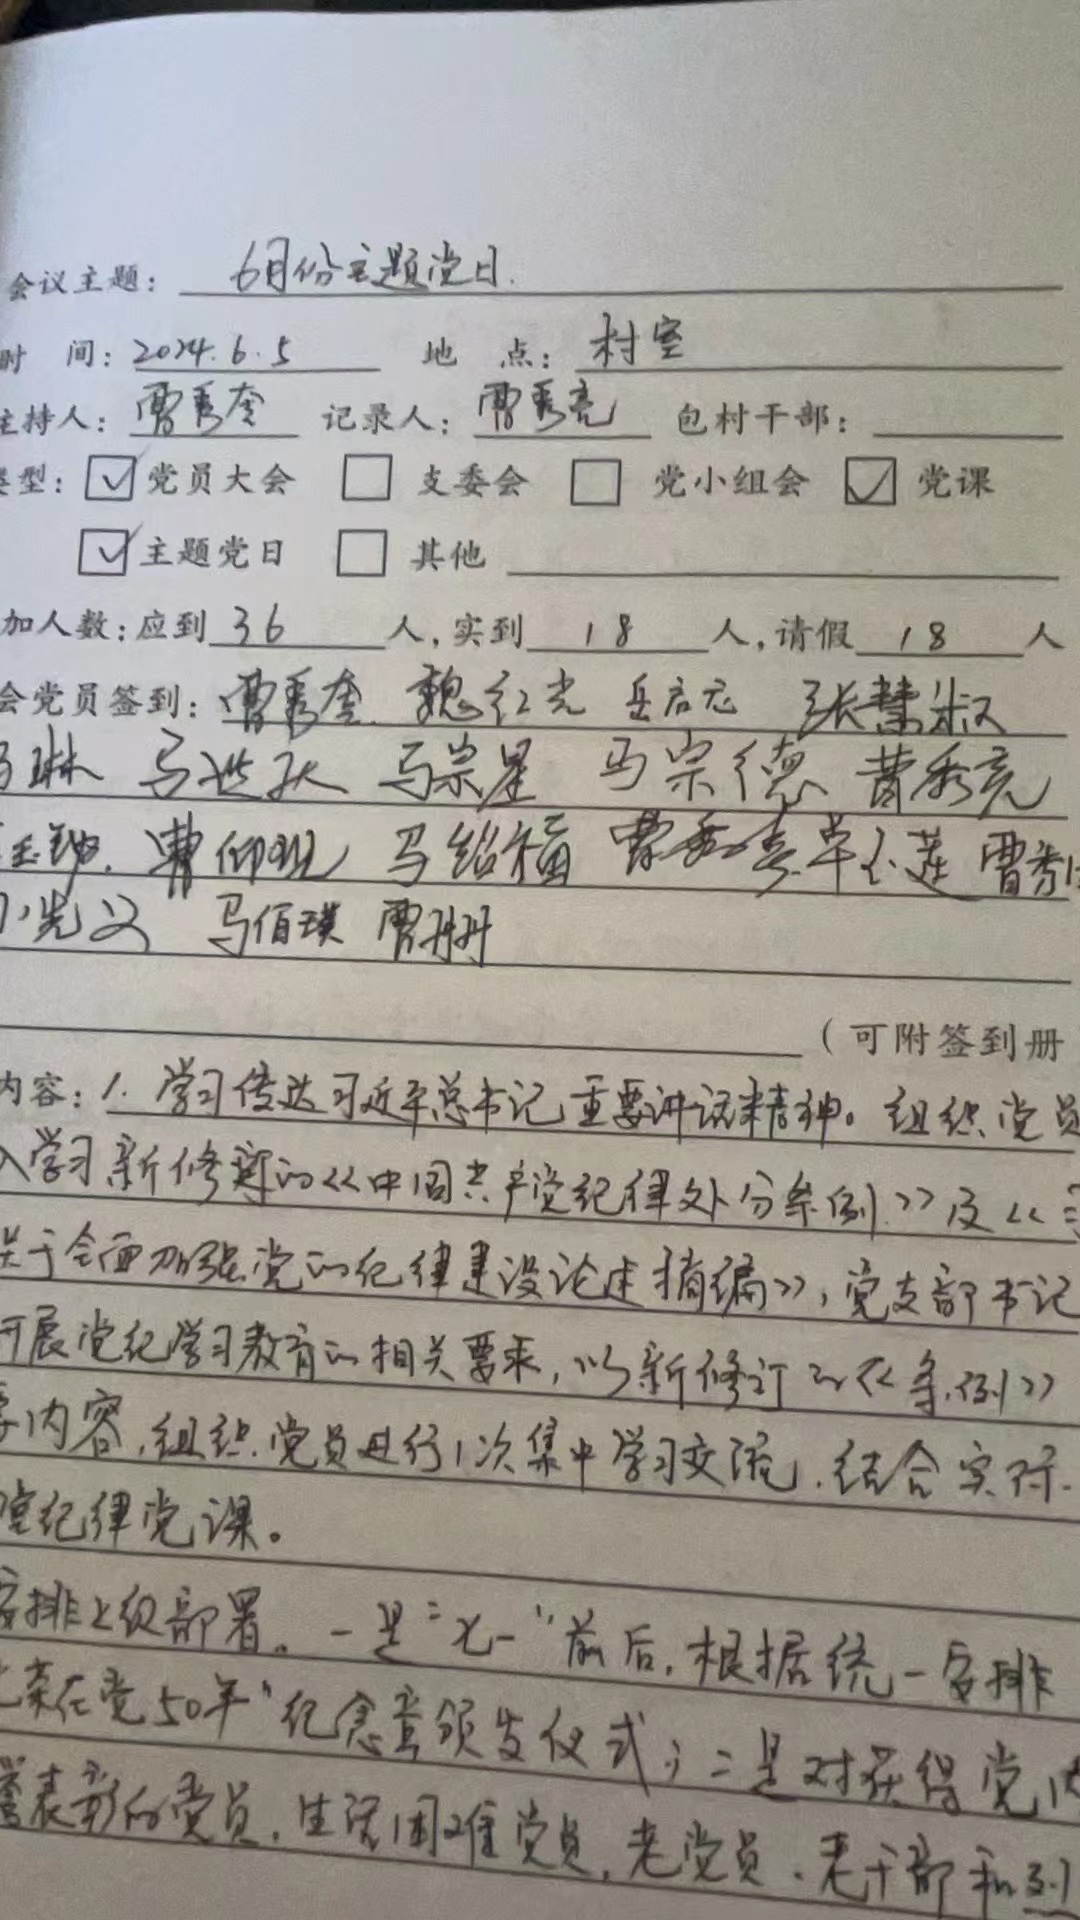 会议主题: 6月份主题党日.
时 间: 2024.6.5 地 点: 村室
主持人: 曹秀奎 记录人: 曹秀亮 包村干部:
类型: 党员大会 支委会 党小组会 党课
主题党日 其他
加人数: 应到 36 人, 实到 18 人, 请假 18 人
会党员签到: 曹秀奎 魏红光 岳启志 张慧淑
马琳 马洪跃 马宗星 马宗德 曹秀亮
曹仰现 马绍福 曹秀
先义 马佰琪 曹丹丹
(可附签到册
内容: 1. 学习传达习近平总书记重要讲话精神。组织党员
入学习新修订的<<中国共产党纪律处分条例>>及<<
关于全面加强党的纪律建设论述摘编>>, 党支部书记
开展党纪学习教育的相关要求, 以新修订的<<条例>>
要内容, 组织党员进行1次集中学习交流, 结合实际.
堂纪律党课。
安排上级部署。一是"七一"前后, 根据统一安排
荣在党50年"纪念章颁发仪式; 二是对获得党内
誉表彰的党员, 生活困难党员, 老党员、老干部和